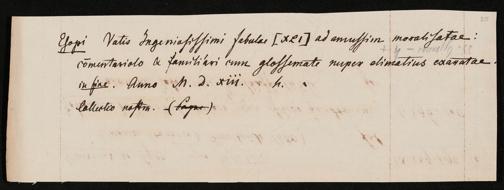 Esopi Vatis Ingeniosissimi fabulae [XCI] ad amussim moralisatae:
cōmentariolo & familiari cum glossemate nuper elimatius exaratae.
in fine. Anno M. d. xiii. 4.
Collectio nostra.